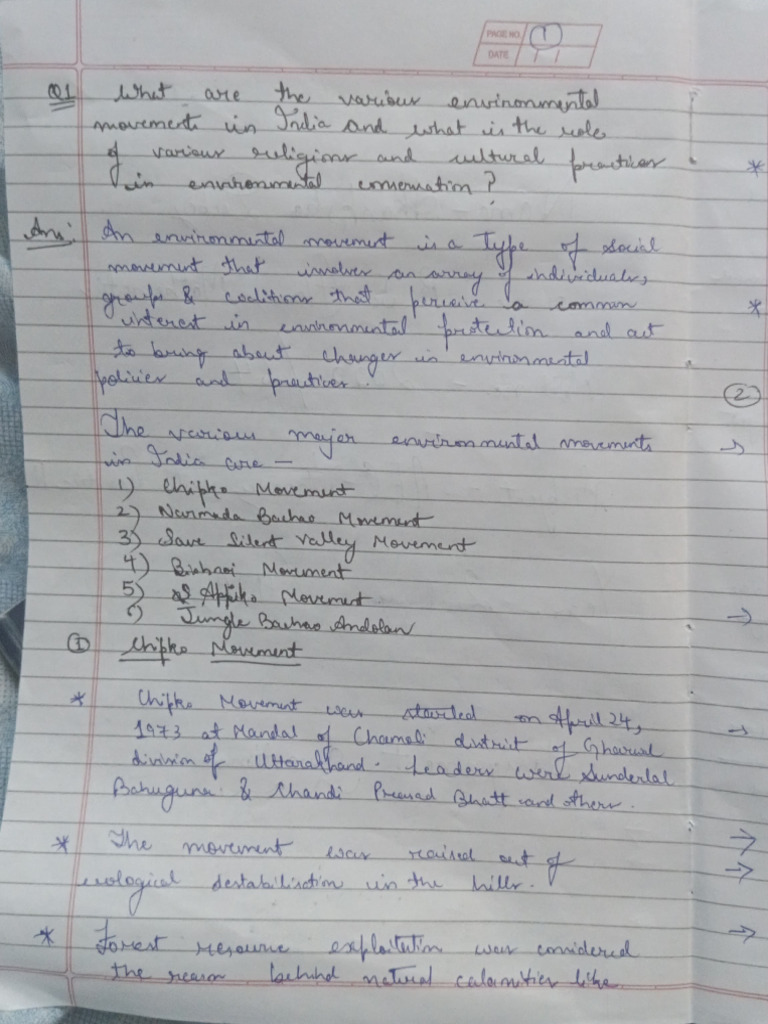 PAGE NO. 1
DATE / /
Q1 What are the various environmental
movements in India and what is the role
of various religions and cultural practices
in environmental conservation?
Ans: An environmental movement is a type of social
movement that involves an array of individuals,
groups & coalitions that perceive a common
interest in environmental protection and act
to bring about changes in environmental
policies and practices.
The various major environmental movements
in India are —
1) Chipko Movement
2) Narmada Bachao Movement
3) Save Silent Valley Movement
4) Bishnoi Movement
5) Appiko Movement
6) Jungle Bachao Andolan
① Chipko Movement
* Chipko Movement was started on April 24,
1973 at Mandal of Chamoli district of Gharwal
division of Uttarakhand. Leaders were Sunderlal
Bahuguna & Chandi Prasad Bhatt and others.
* The movement was raised out of
ecological destabilisation in the hills.
* Forest resource exploitation was considered
the reason behind natural calamities like
*
*
②
→
→
→
→
→
→